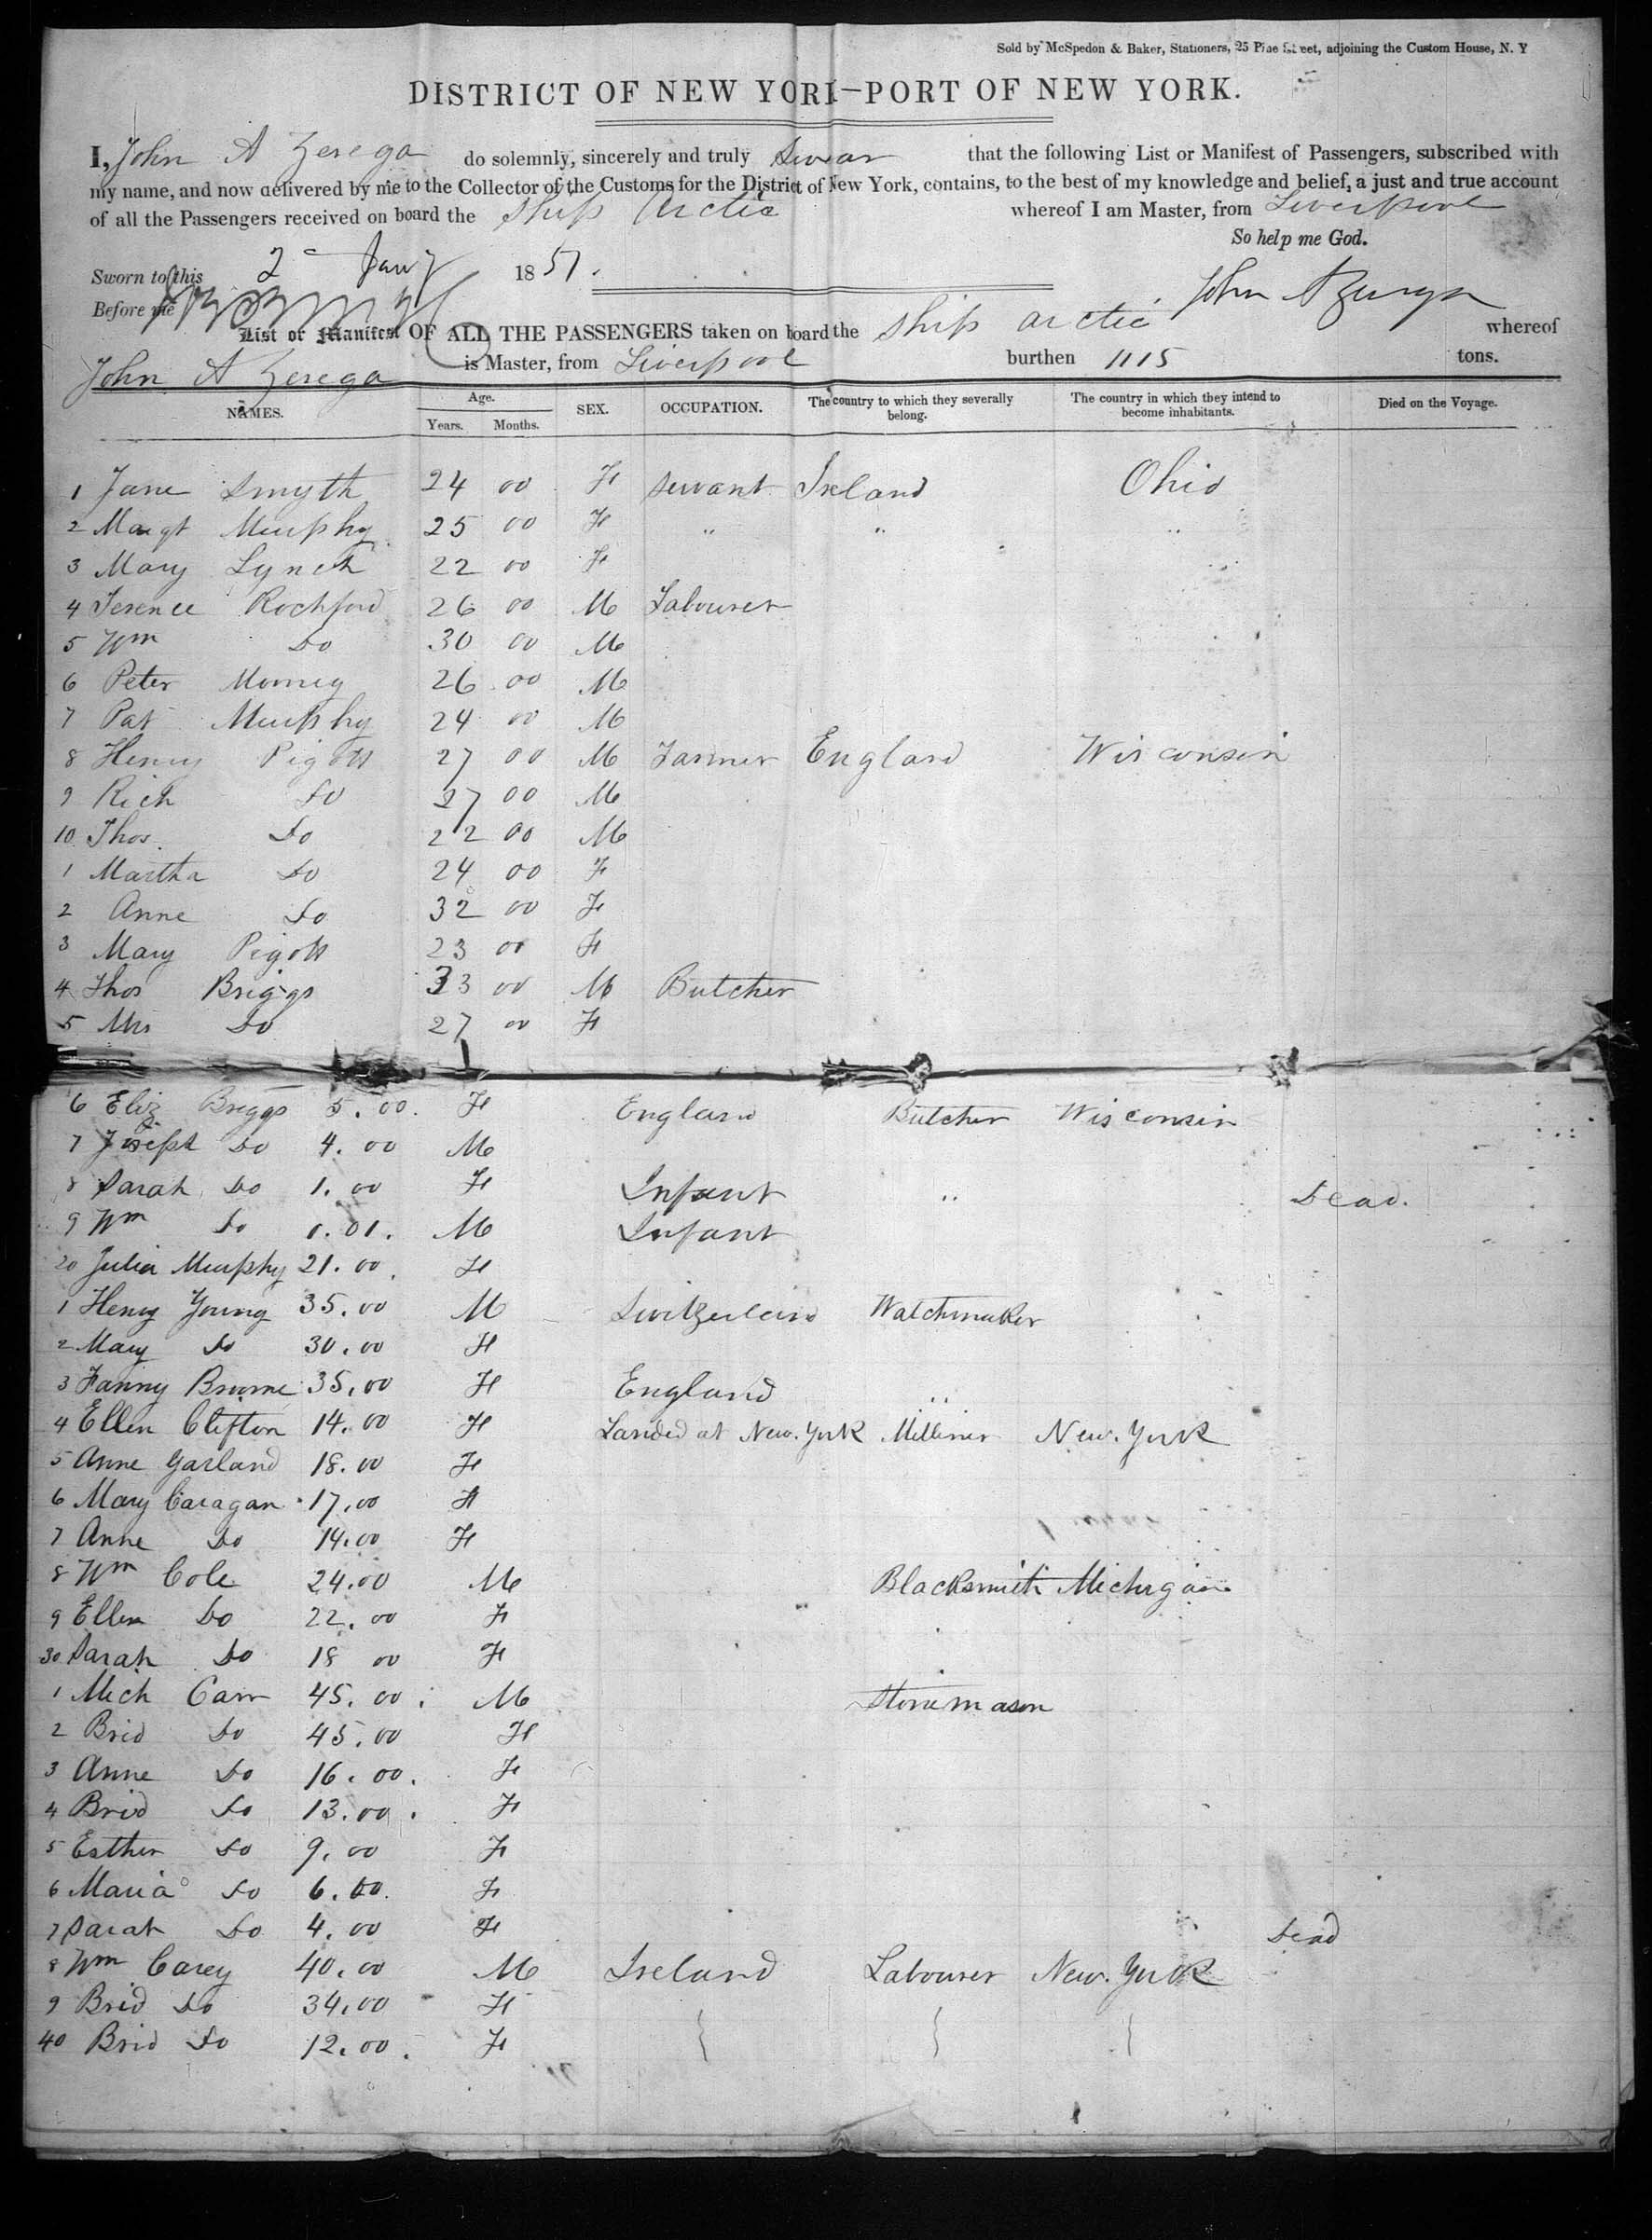 Sold by McSpedon & Baker, Stationers, 25 Pine Street, adjoining the Custom House, N. Y
DISTRICT OF NEW YORK—PORT OF NEW YORK.
I, John A Zerega do solemnly, sincerely and truly Swear that the following List or Manifest of Passengers, subscribed with
my name, and now delivered by me to the Collector of the Customs for the District of New York, contains, to the best of my knowledge and belief, a just and true account
of all the Passengers received on board the Ship Arctic whereof I am Master, from Liverpool
So help me God.
Sworn to this 2 Jany 1851.
Before me
John A Zerega
List or Manifest OF ALL THE PASSENGERS taken on board the Ship Arctic whereof
John A Zerega is Master, from Liverpool burthen 1115 tons.
NAMES. Age. Years. Months. SEX. OCCUPATION. The country to which they severally belong. The country in which they intend to become inhabitants. Died on the Voyage.
1 Jane Smyth 24 00 F Servant Ireland Ohio
2 Margt Murphy 25 00 F " " "
3 Mary Lynch 22 00 F
4 Terence Rochford 26 00 M Labourer
5 Wm Do 30 00 M
6 Peter 26 00 M
7 Pat Murphy 24 00 M
8 Henry Pigott 27 00 M Farmer England Wisconsin
9 Rich Do 27 00 M
10 Thos. Do 22 00 M
1 Martha Do 24 00 F
2 Anne Do 32 00 F
3 Mary Pigott 23 00 F
4 Thos Briggs 33 00 M Butcher
5 Mrs Do 27 00 F
6 Eliz Briggs 5.00. F England Butcher Wisconsin
7 Joseph Do 4.00 M
8 Sarah Do 1.00 F Infant " Dead.
9 Wm Do 0.01. M Infant
20 Julia Murphy 21.00. F
1 Henry Young 35.00 M Switzerland Watchmaker
2 Mary Do 30.00 F
3 Fanny Broome 35.00 F England "
4 Ellen Clifton 14.00 F Landed at New. York Milliner New. York
5 Anne Garland 18.00 F
6 Mary Caragan 17.00 F
7 Anne Do 14.00 F
8 Wm Cole 24.00 M Blacksmith Michigan
9 Ellen Do 22.00 F
30 Sarah Do 18 00 F
1 Mich Carr 45.00. M Stonemason
2 Brid Do 45.00 F
3 Anne Do 16.00. F
4 Brid Do 13.00. F
5 Esther Do 9.00 F
6 Maria Do 6.00. F
7 Sarah Do 4.00 F Dead
8 Wm Carey 40.00 M Ireland Labourer New. York
9 Brid Do 34.00 F
40 Brid Do 12.00. F